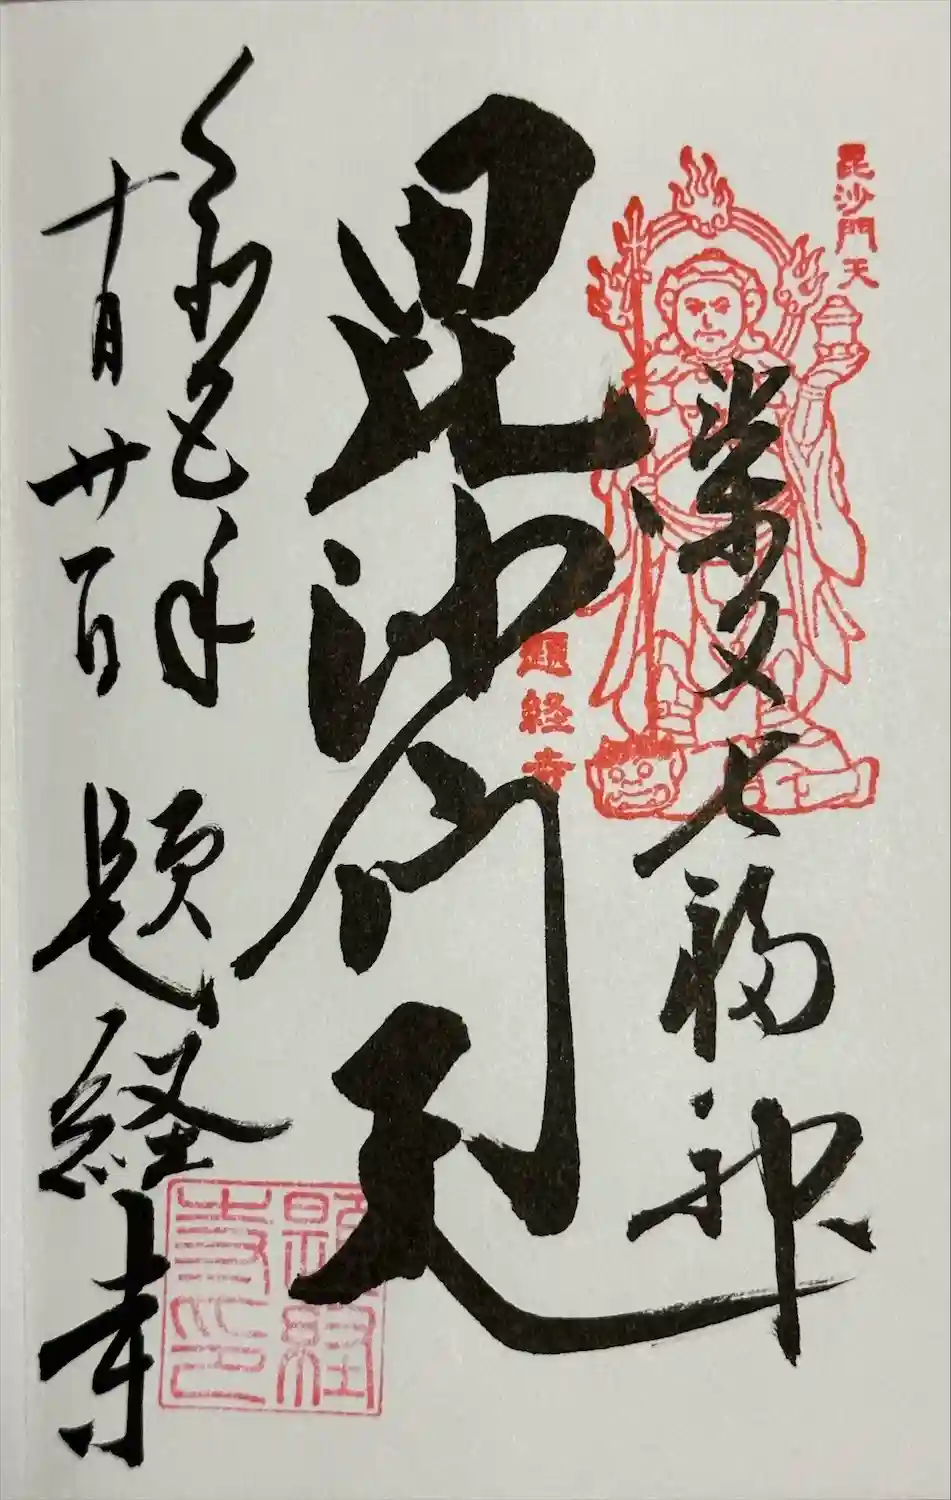 毘沙門天
柴又七福神
毘沙門天
題経寺
令和五年
十月廿一日
題経寺
題経寺印